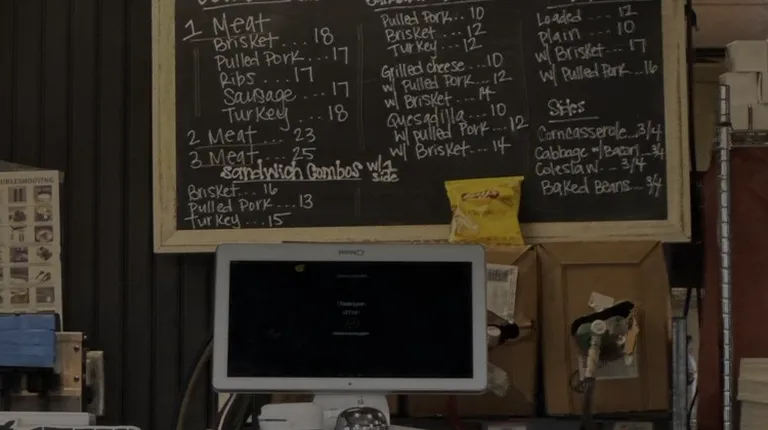 1 Meat
Brisket....18
Pulled Pork...17
Ribs...17
Sausage....17
Turkey....18
2 Meat....23
3 Meat....25
Sandwich Combos w/1 side
Brisket...16
Pulled Pork...13
Turkey...15
Pulled Pork...10
Brisket....12
Turkey....12
Grilled cheese...10
w/ Pulled Pork...12
w/ Brisket...14
Quesadilla....10
w/ pulled Pork...12
w/ Brisket....14
Loaded....12
plain....10
w/ Brisket....17
w/ Pulled Pork...16
Sides
Corncasserole...3/4
Cabbage w/Bacon...3/4
Coleslaw...3/4
Baked Beans...3/4